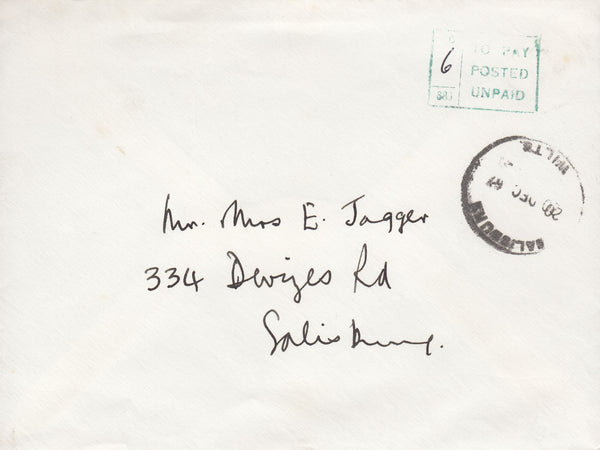 6
TO PAY
POSTED
UNPAID
SALISBURY
WILTS.
Mr. Mrs E. Jagger
334 Devizes Rd
Salisbury.